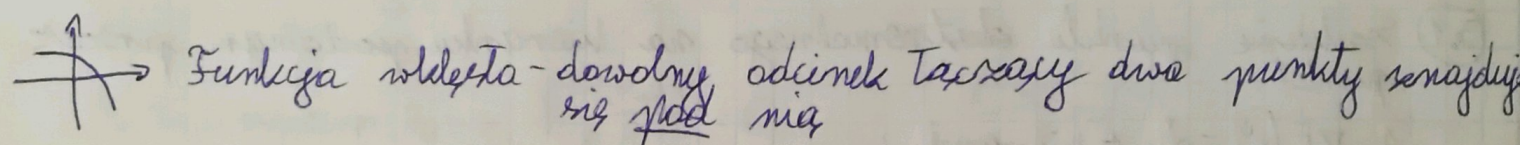 Funkcja wklęsła - dowolny odcinek łączący dwa punkty znajduj
się pod nią